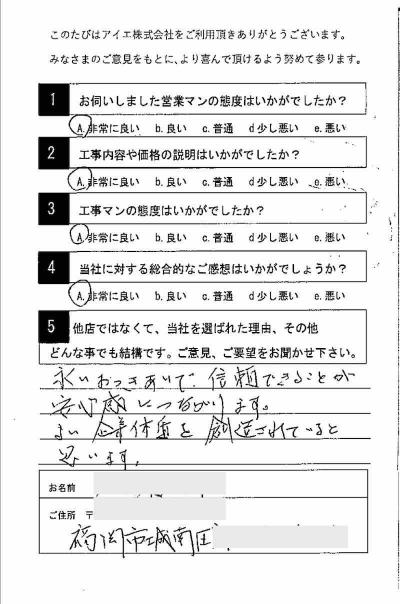 このたびはアイエ株式会社をご利用頂きありがとうございます。
みなさまのご意見をもとに、より喜んで頂けるよう努めて参ります。
1 お伺いしました営業マンの態度はいかがでしたか？
A.非常に良い b.良い c.普通 d少し悪い e.悪い
2 工事内容や価格の説明はいかがでしたか？
A.非常に良い b.良い c.普通 d少し悪い e.悪い
3 工事マンの態度はいかがでしたか？
A.非常に良い b.良い c.普通 d少し悪い e.悪い
4 当社に対する総合的なご感想はいかがでしょうか？
A.非常に良い b.良い c.普通 d少し悪い e.悪い
5 他店ではなくて、当社を選ばれた理由、その他
どんな事でも結構です。ご意見、ご要望をお聞かせ下さい。
永いおつきあいで信頼できることが
安心感につながります。
企業体質を創造されていると
思います。
お名前
ご住所 〒
福岡市城南区